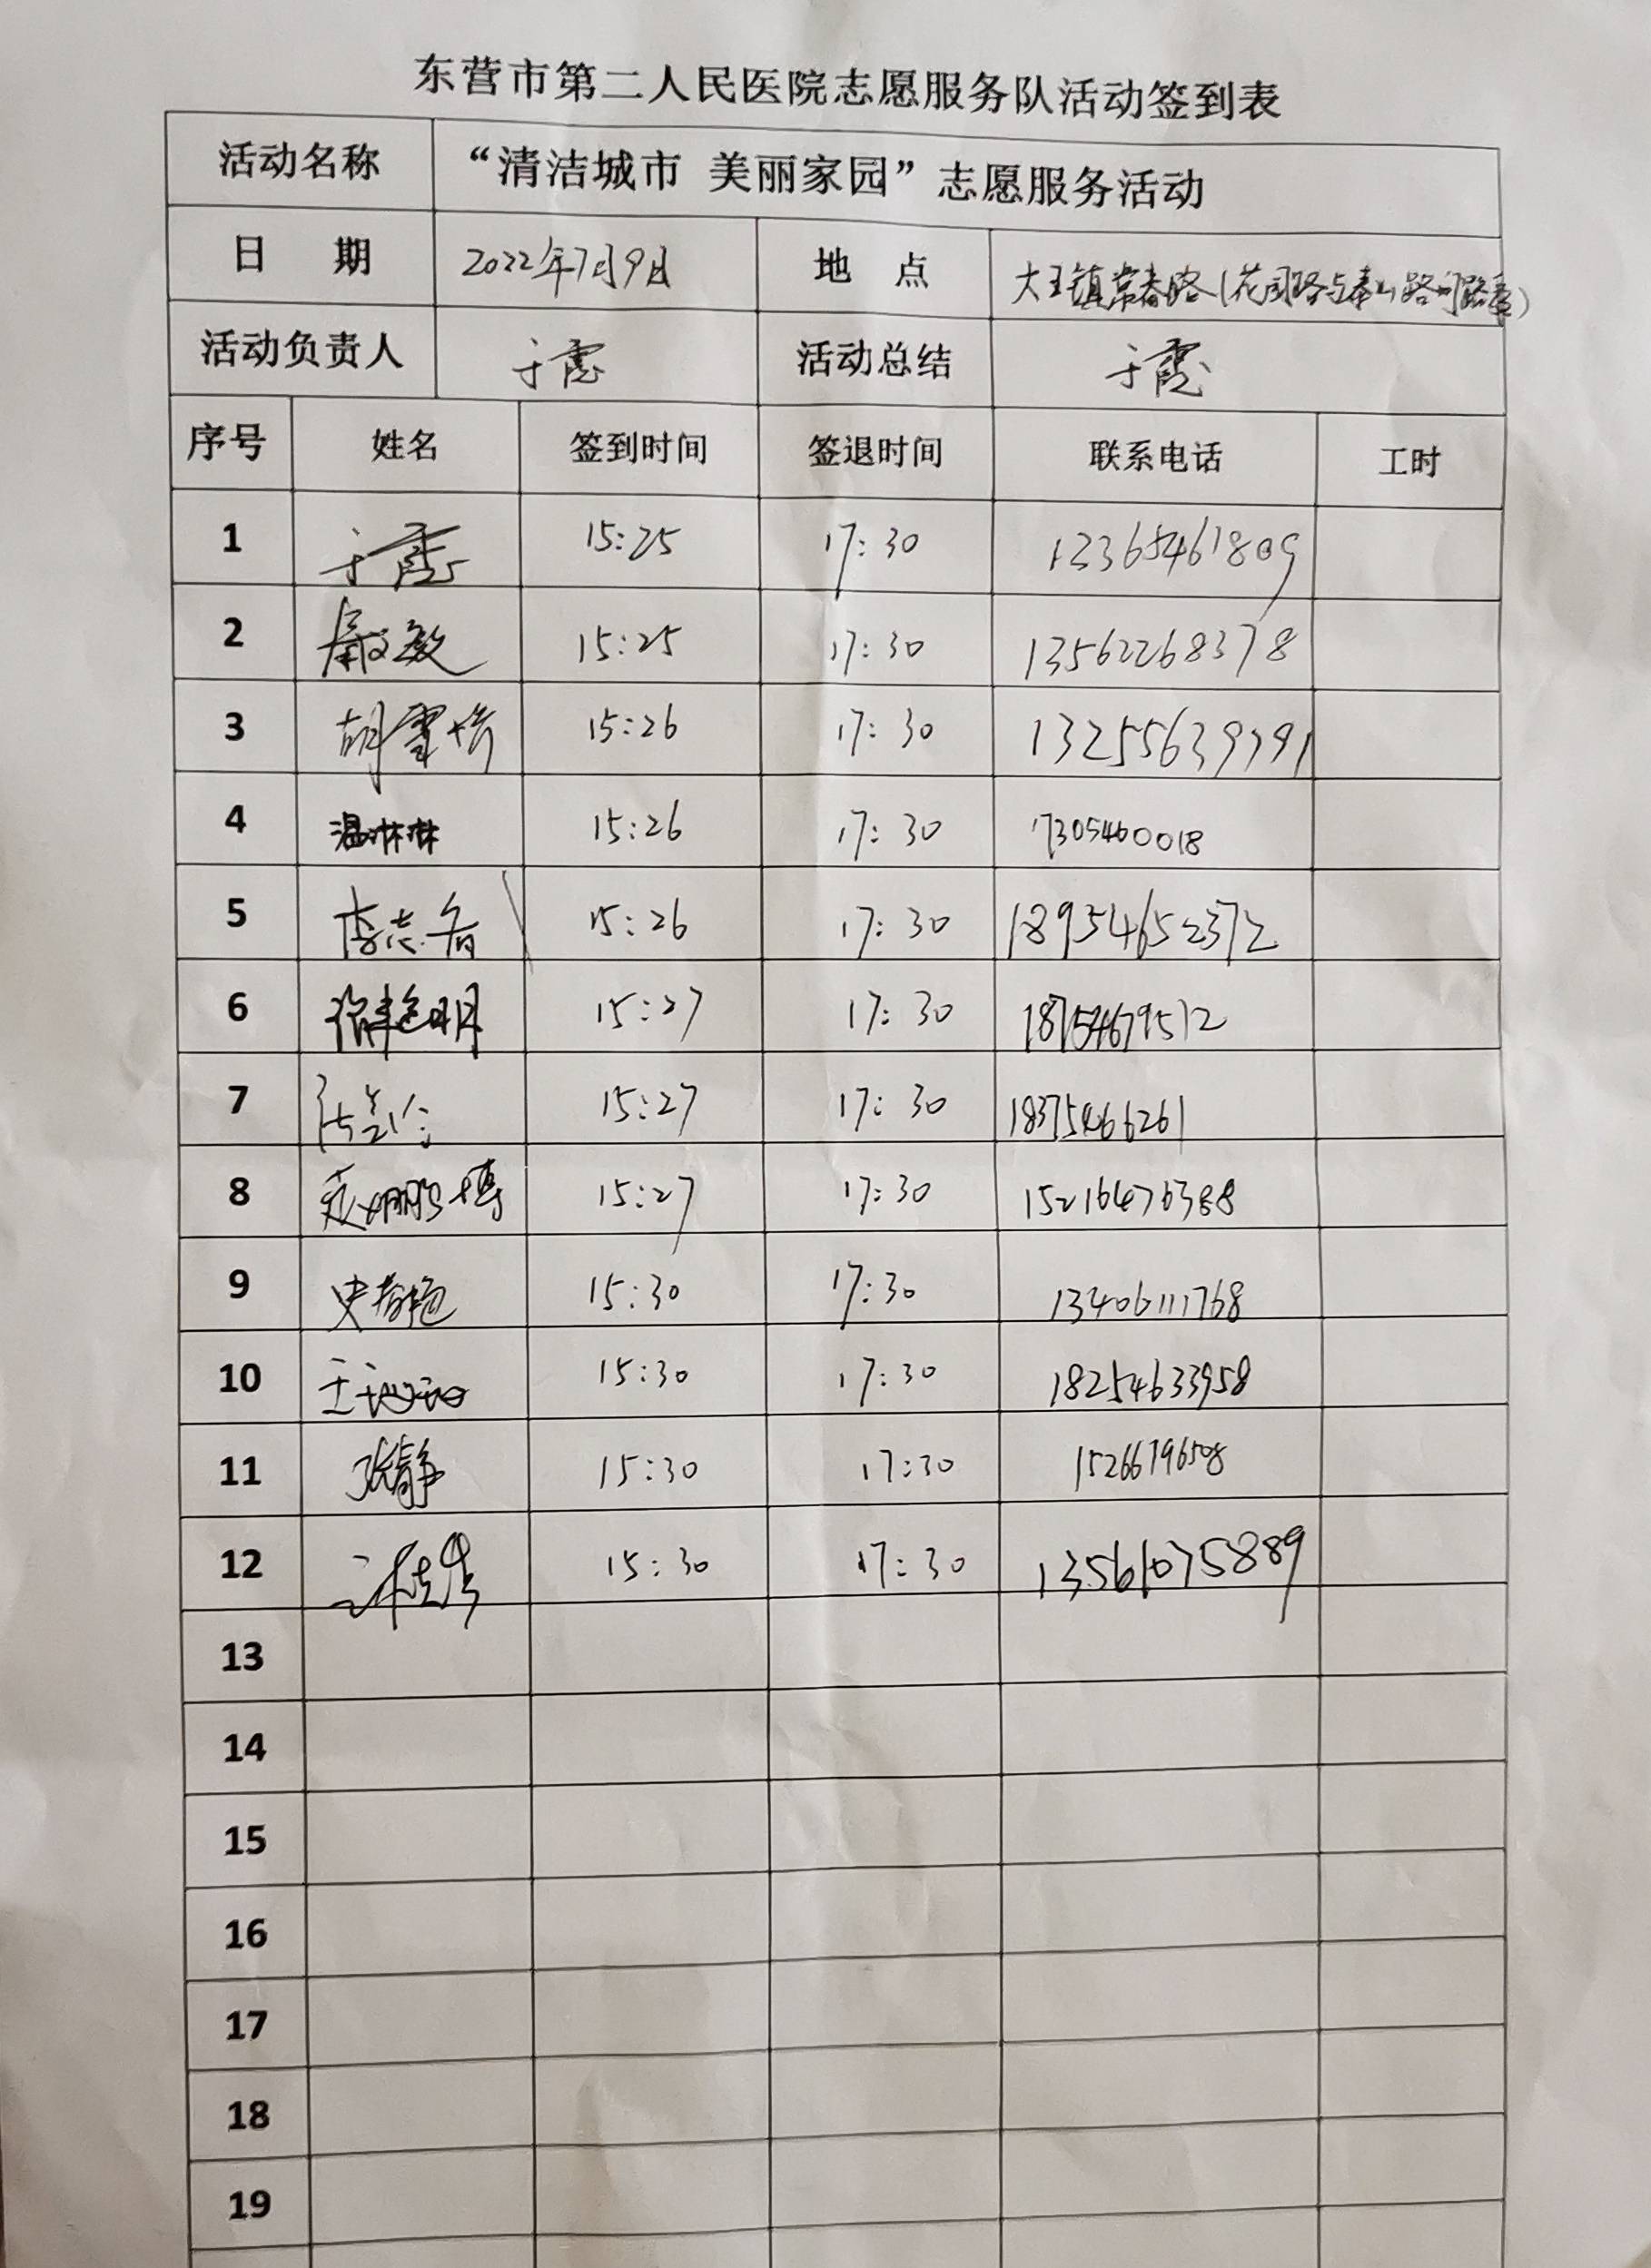 东营市第二人民医院志愿服务队活动签到表
活动名称 “清洁城市 美丽家园”志愿服务活动
日 期 2022年7月9日 地 点 大王镇常春路(花园路与泰山路间路段)
活动负责人 于霞 活动总结 于霞
序号 姓名 签到时间 签退时间 联系电话 工时
1 于霞 15:25 17:30 12365461809
2 15:25 17:30 13562268378
3 胡雪 15:26 17:30 13255639791
4 温琳琳 15:26 17:30 17305460018
5 李志 15:26 17:30 18954652372
6 15:27 17:30 18754679512
7 15:27 17:30 18375466261
8 15:27 17:30 15216476388
9 史春艳 15:30 17:30 13406111768
10 王 15:30 17:30 18254633958
11 张静 15:30 17:30 15266796508
12 15:30 17:30 13561075889
13
14
15
16
17
18
19